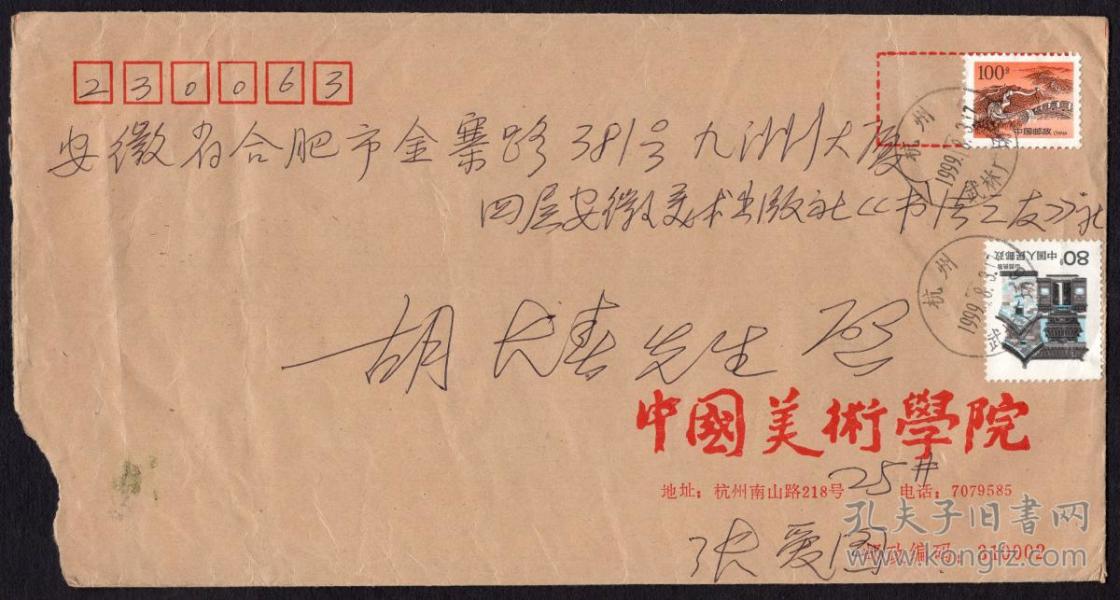 230063
100分
中国邮政 CHINA
安徽省合肥市金寨路381号九洲大厦
杭州
1999.8.3.17
武林广
四层安徽美术出版社《书法之友》社
80分
中国人民邮政
杭州
1999.8.3.17
武
胡大春先生 启
中國美術學院
地址：杭州南山路218号 25# 电话：7079585
张爱国
邮政编码：310002
孔夫子旧書网
www.kongfz.com